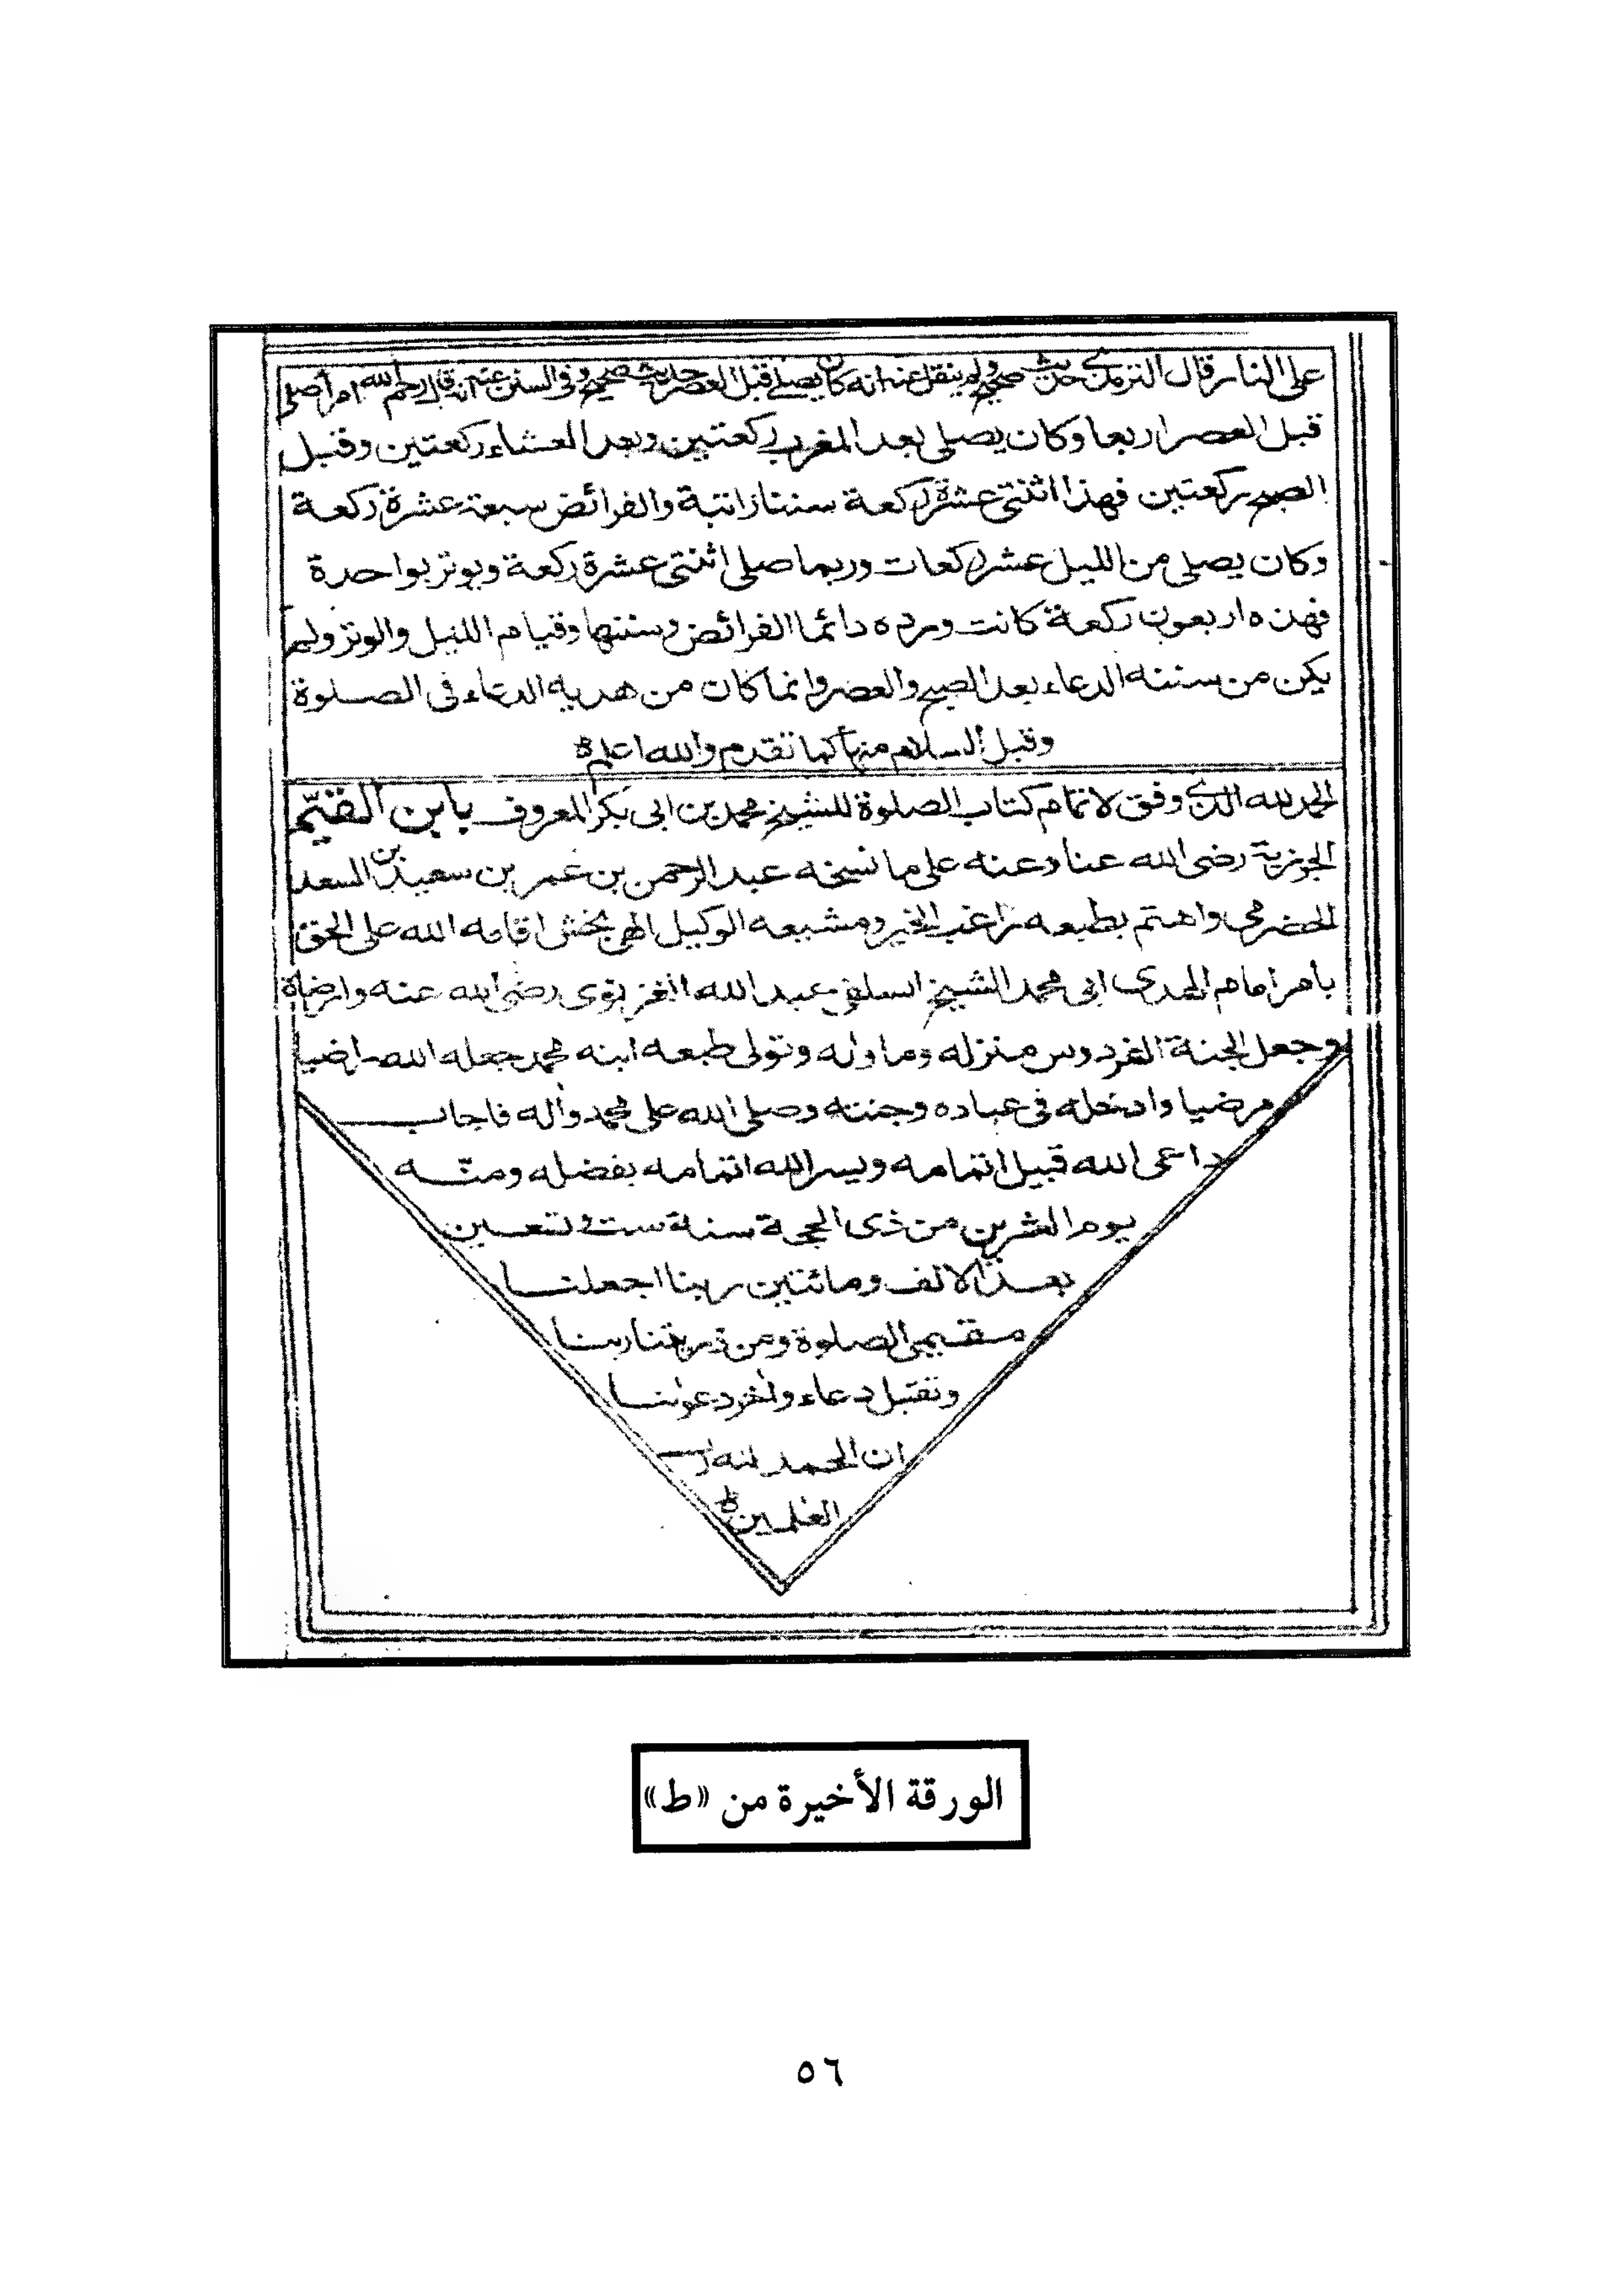 على النار قال الترمذي حديث صحيح ولم ينقل عنه انه كان يصلي قبل العصر حديث صحيح وفي السنن عنه انه قال رحم الله امرأ صلى
قبل العصر اربعا وكان يصلى بعد المغرب ركعتين وبعد العشاء ركعتين وقبل
الصبح ركعتين فهذا اثنتى عشرة ركعة سننا راتبة والفرائض سبعة عشرة ركعة
وكان يصلى من الليل عشر ركعات وربما صلى اثنتى عشرة ركعة ويوتر بواحدة
فهذه اربعون ركعة كانت ورده دائما الفرائض وسننها وقيام الليل والوتر ولم
يكن من سننه الدعاء بعد الصبح والعصر وانما كان من هديه الدعاء فى الصلوة
وقبل السلام منها كما تقدم والله اعلم
الحمد لله الذي وفق لاتمام كتاب الصلوة للشيخ محمد بن ابى بكر المعروف بابن القيّم
الجوزية رضى الله عنا وعنه على ما نسخه عبد الرحمن بن عمر بن سعيد بن السعد
الحضرمى واهتم بطبعه راغب الخير ومشيعه الوكيل الهى بخش اقامه الله على الحق
بأمر امام المجدى ابى محمد الشيخ السلفى عبد الله الغزنوى رضى الله عنه وارضاه
وجعل الجنة الفردوس منزله وماوله وتولى طبعه ابنه محمد جعله الله راضيا
مرضيا وادخله فى عباده وجنته وصلى الله على محمد وأله فاجاب
داعى الله قبيل اتمامه ويسر الله اتمامه بفضله ومنّه
يوم العشرين من ذى الحجة سنة ست وتسعين
بعد الالف ومائتين ربنا اجعلنا
مقيمى الصلوة ومن ذريتنا ربنا
وتقبل دعاء وأخر دعوٰنا
ان الحمد لله رب
العٰلمين
الورقة الأخيرة من «ط»
٥٦